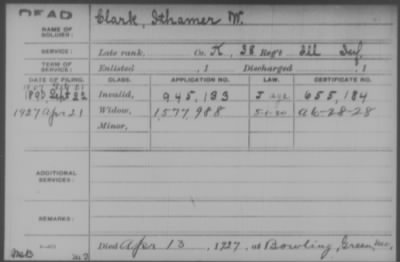 DEAD
NAME OF SOLDIER:
Clark, Ithamer W.
SERVICE:
Late rank, Co. K, 38 Reg't Ill Inf.
TERM OF SERVICE:
Enlisted , 1 Discharged , 1
DATE OF FILING. CLASS. APPLICATION NO. LAW. CERTIFICATE NO.
Invalid, 945,133 655,184
1927 Apr 21 Widow, 1577,988 5-1-20 a6-28-28
Minor,
ADDITIONAL SERVICES:
REMARKS:
Died Apr 13, 1927, at Bowling Green,